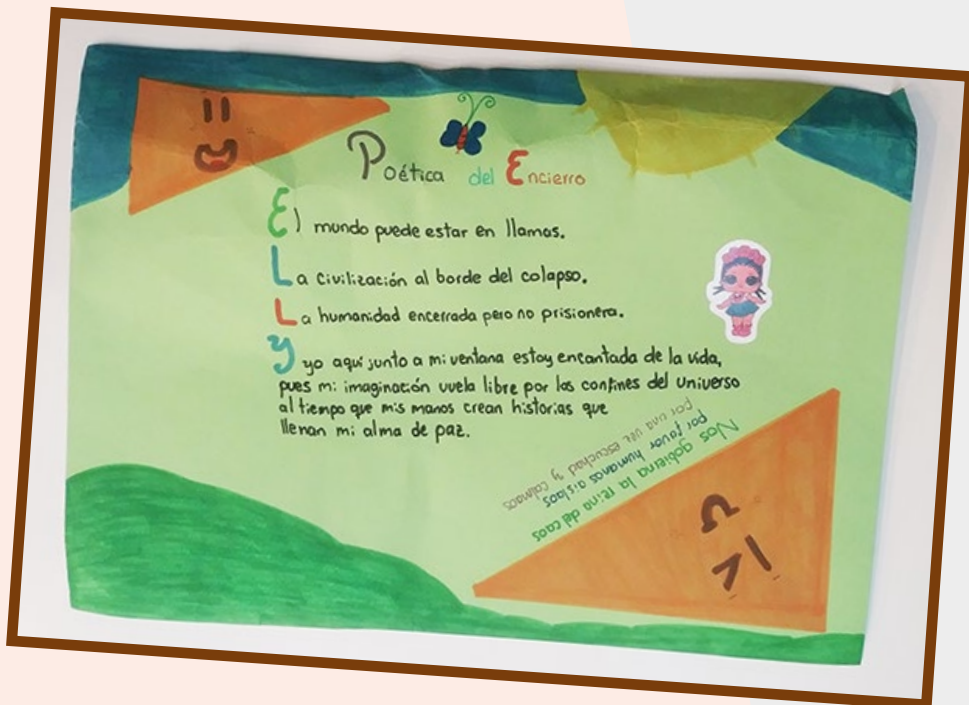 Poética del Encierro
El mundo puede estar en llamas.
La civilización al borde del colapso.
La humanidad encerrada pero no prisionera.
Y yo aquí junto a mi ventana estoy encantada de la vida,
pues mi imaginación vuela libre por los confines del universo
al tiempo que mis manos crean historias que
llenan mi alma de paz.
Nos gobierna la reina del caos
por favor humanos aislaos
por una vez escuchad y calmaos